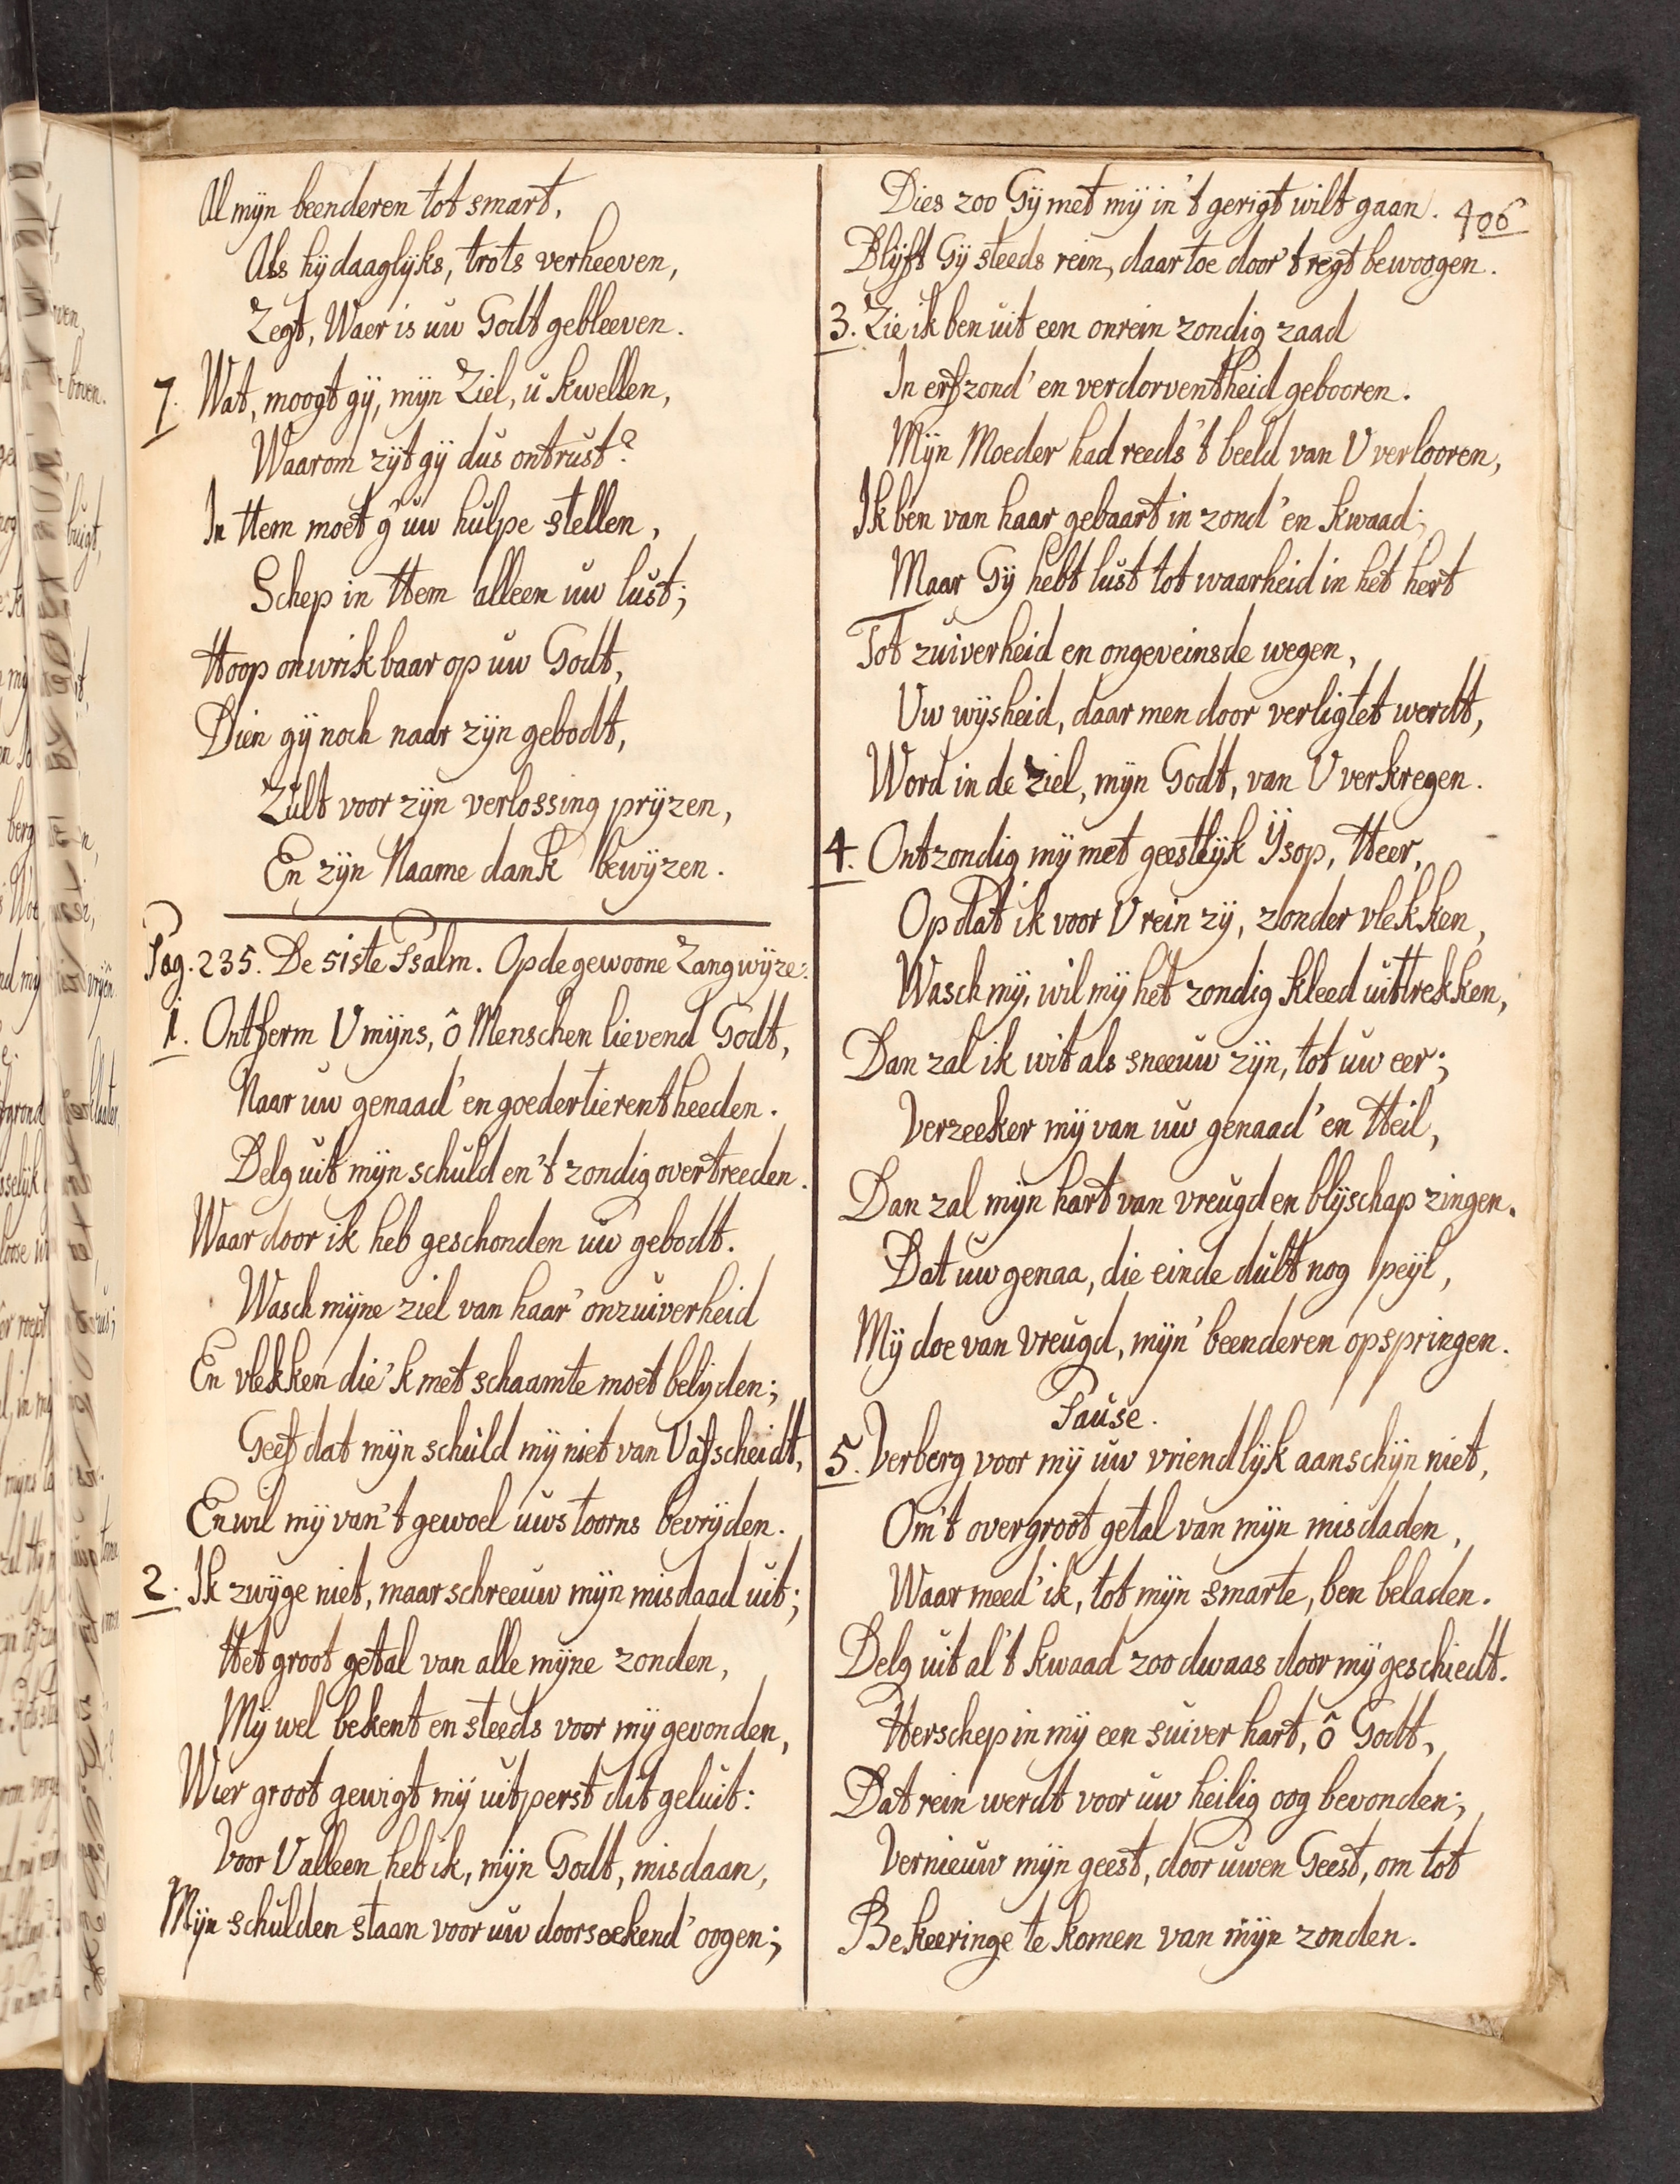 Al mijn beenderen tot smart,
Als hij daaglijks, trots verheeven,
Zegt, Waer is uw Godt gebleeven.
7. Wat, moogt gij, mijn Ziel, u kwellen,
Waarom zijt gij dus ontrust?
In Hem moet g' uw hulpe stellen,
Schep in Hem alleen uw lust;
Hoop onwrikbaar op uw Godt,
Dien gij noch nadr zijn gebodt,
Zult voor zijn verlossing prijzen,
En zijn Naame dank bewijzen.
Pag. 235. De 51ste Psalm. Op de gewoone Zangwijze.
1. Ontferm U mijns, ô Menschen lievend Godt,
Naar uw genaad' en goedertierentheeden.
Delg uit mijn schuld en 't zondig overtreeden.
Waar door ik heb geschonden uw gebodt.
Wasch mijne ziel van haar' onzuiverheid
En vlekken die 'k met schaamte moet belijden;
Geef dat mijn schuld mij niet van U afscheidt,
En wil mij van 't gewoel uws toorns bevrijden.
2. Ik zwijge niet, maar schreeuw mijn misdaad uit;
Het groot getal van alle mijne zonden,
Mij wel bekent en steeds voor mij gevonden,
Wier groot gewigt mij uitperst dit geluit:
Voor U alleen heb ik, mijn Godt, misdaan,
Mijn schulden staan voor uw doorsoekend' oogen;
406
Dies zoo Gij met mij in 't gerigt wilt gaan.
Blijft Gij steeds rein, daar toe door 't regt bewoogen.
3. Zie ik ben uit een onrein zondig zaad
In erfzond' en verdorventheid gebooren.
Mijn Moeder had reeds 't beeld van U verlooren,
Ik ben van haar gebaart in zond' en kwaad;
Maar Gij hebt lust tot waarheid in het hert
Tot zuiverheid en ongeveinsde wegen,
Uw wijsheid, daar men door verligtet werdt,
Word in de ziel, mijn Godt, van U verkregen.
4. Ontzondig mij met geestlijk Ysop, Heer,
Op dat ik voor U rein zij, zonder vlekken,
Wasch mij, wil mij het zondig kleed uittrekken,
Dan zal ik wit als sneeuw zijn, tot uw eer;
Verzeeker mij van uw genaad' en Heil,
Dan zal mijn hart van vreugd en blijschap zingen.
Dat uw genaa, die einde dult nog peijl,
Mij doe van vreugd, mijn' beenderen opspringen.
Pause.
5. Verberg voor mij uw vriendlijk aanschijn niet,
Om 't overgroot getal van mijn misdaden,
Waar meed' ik, tot mijn smarte, ben beladen.
Delg uit al 't kwaad zoo dwaas door mij geschiedt.
Herschep in mij een suiver hart, ô Godt,
Dat rein werdt voor uw heilig oog bevonden;
Vernieuw mijn geest, door uwen Geest, om tot
Bekeeringe te komen van mijn zonden.